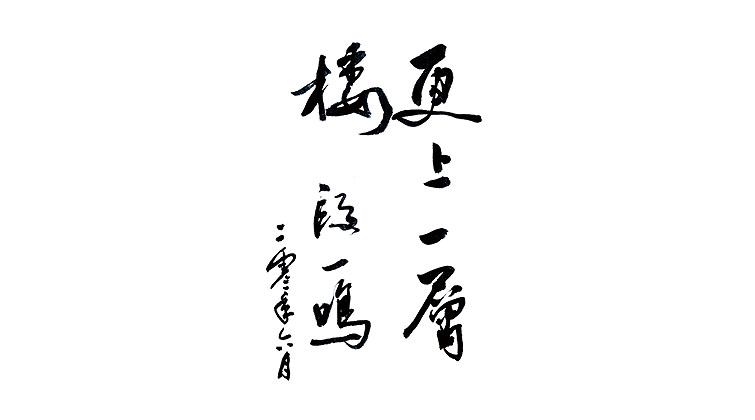 更上一層
樓
段一鳴
二零年六月